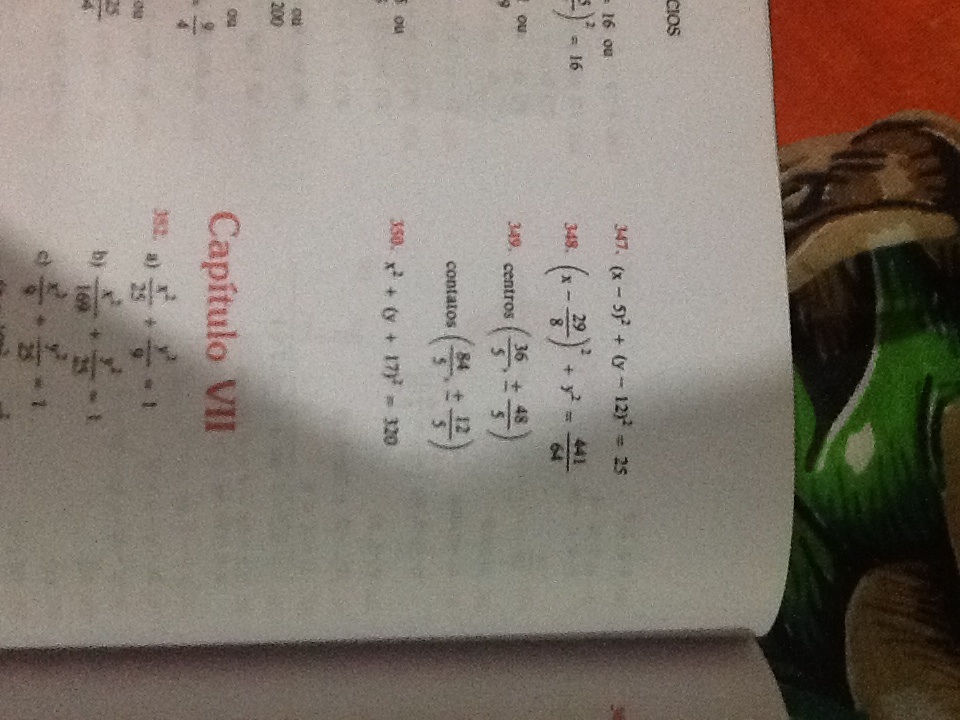 CIOS
= 16 ou
)² = 16
ou
ou
ou
200
ou
9/4
ou
25/4
347. (x − 5)² + (y − 12)² = 25
348. (x − 29/8)² + y² = 441/64
349. centros (36/5, ± 48/5)
contatos (84/5, ± 12/5)
350. x² + (y + 17)² = 320
Capítulo VII
352. a) x²/25 + y²/9 = 1
b) x²/169 + y²/25 = 1
c) x²/9 + y²/25 = 1